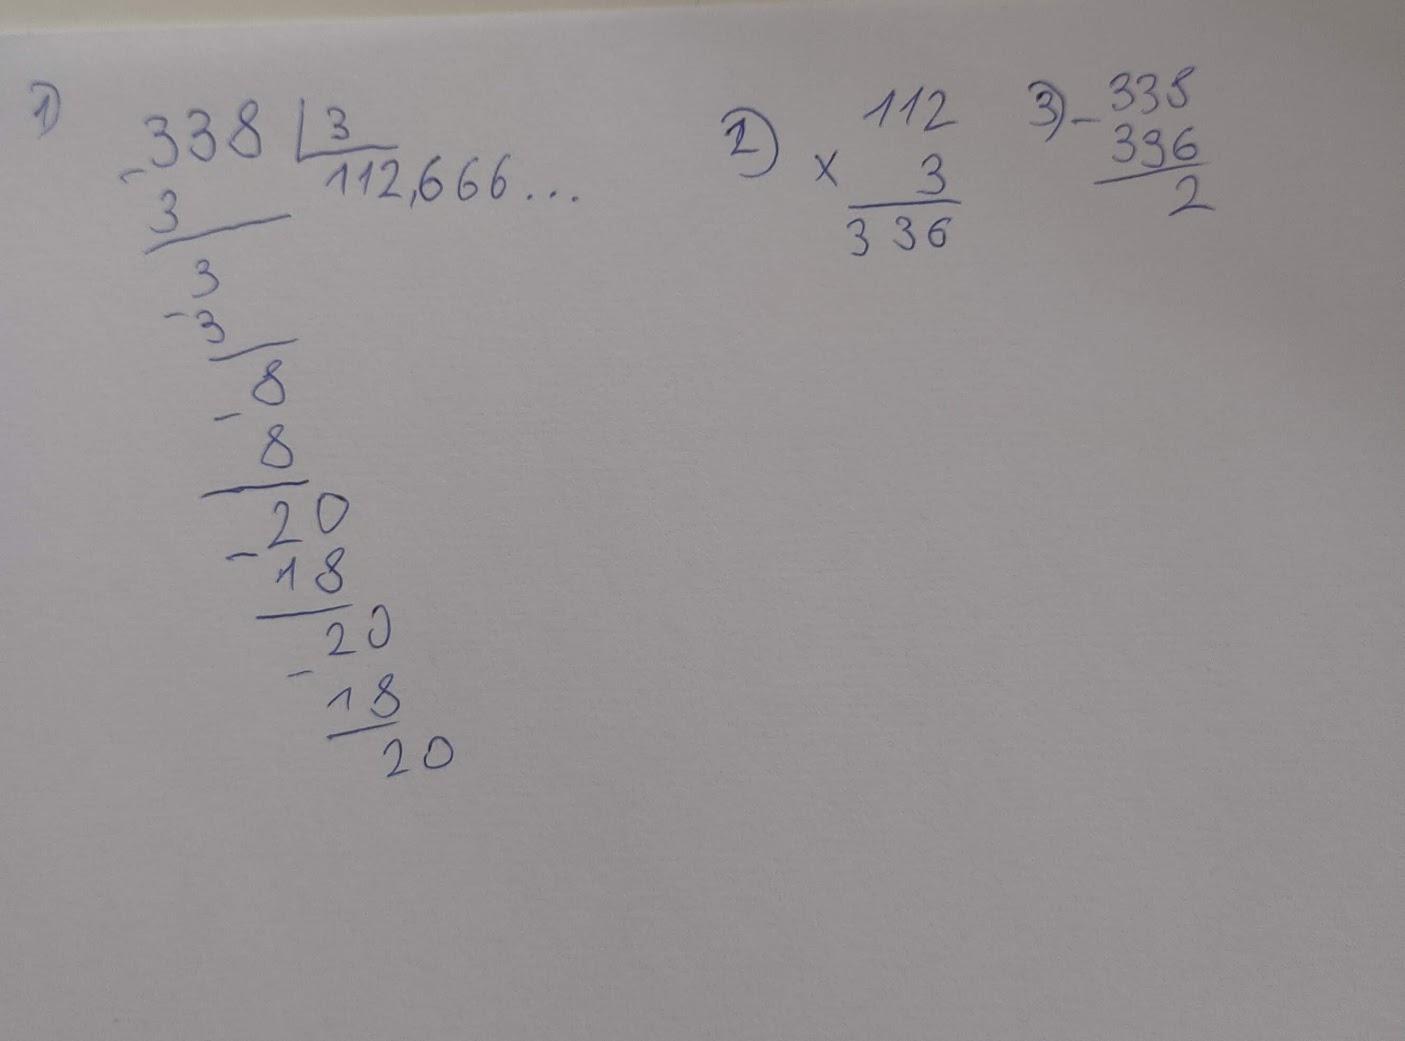 1)
- 338 | 3
112,666...
3
3
- 3
8
- 8
20
- 18
20
- 18
20
2)
112
x 3
336
3) - 338
336
2